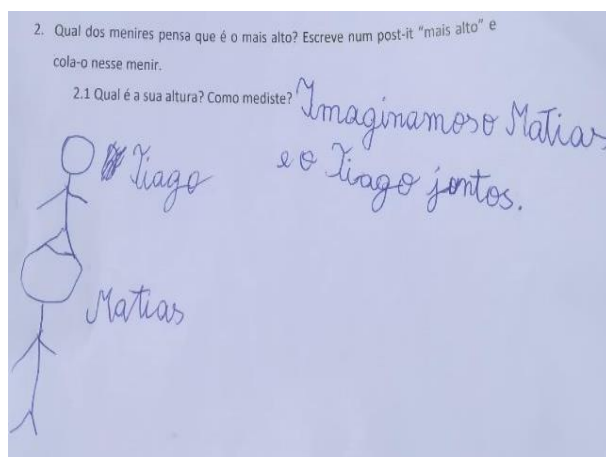 2. Qual dos menires pensa que é o mais alto? Escreve num post-it “mais alto” e
cola-o nesse menir.
2.1 Qual é a sua altura? Como mediste?
Imaginamos o Matias
e o Tiago jontos.
Tiago
Matias